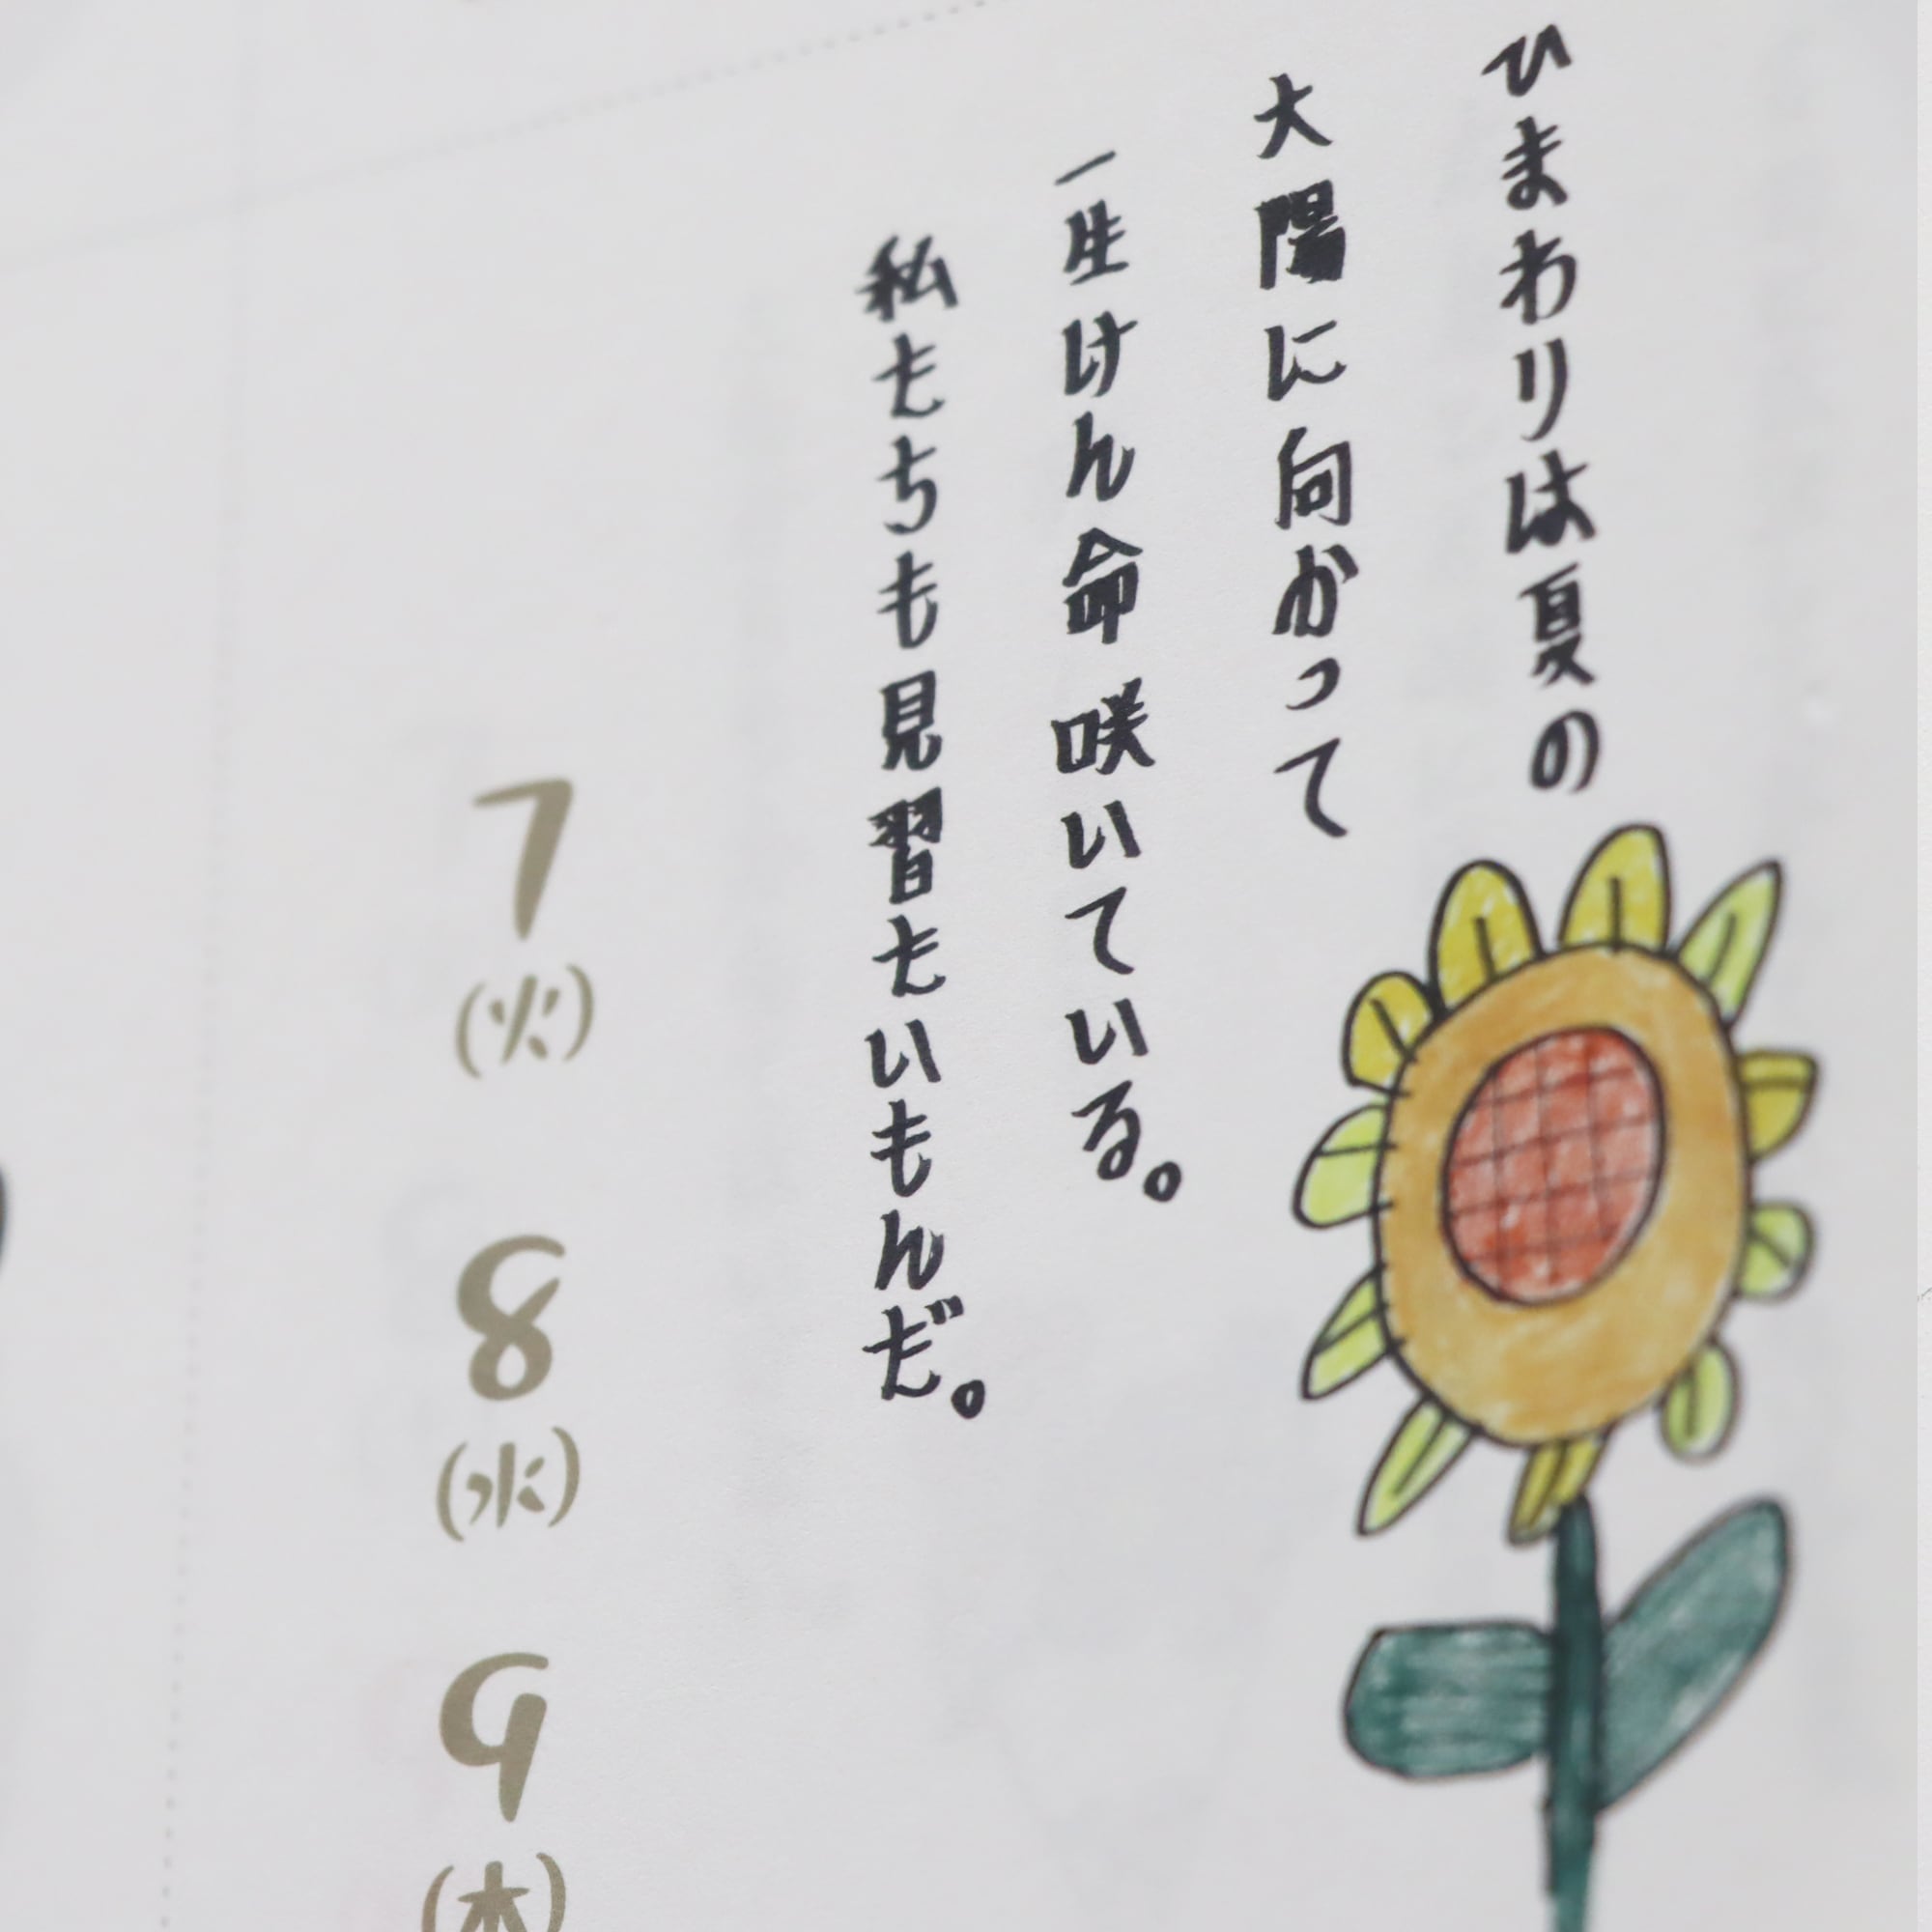 ひまわりは夏の
大陽に向かって
一生けん命咲いている。
私たちも見習たいもんだ。
7
(火)
8
(水)
9
(木)